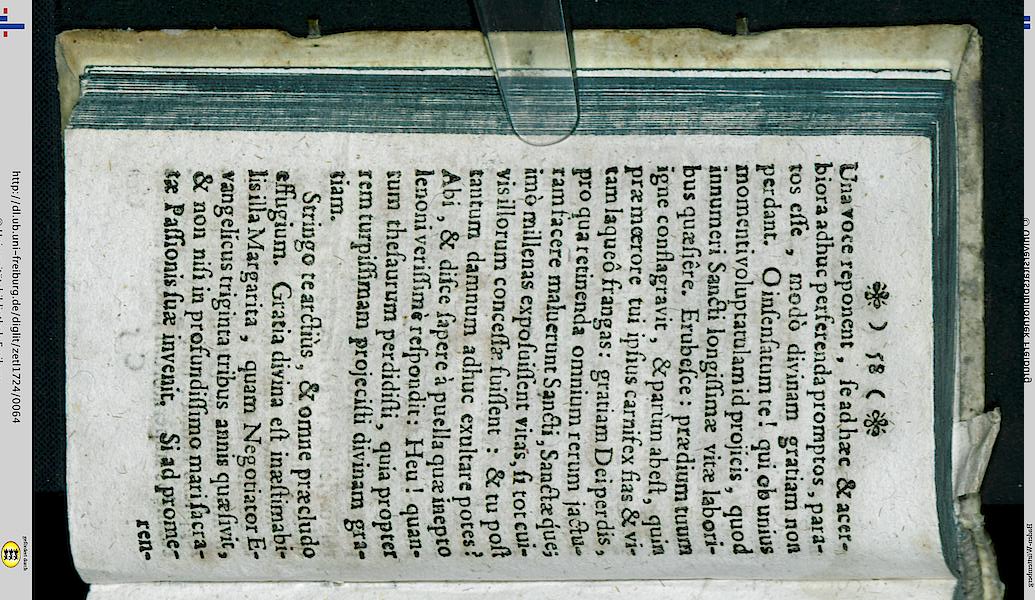 ❋ ) 58 ( ❋
Una voce reponent, se ad hæc & acer-
biora adhuc perferenda promptos, para-
tos esse, modò divinam gratiam non
perdant. O insensatum te! qui ob unius
momenti voluptatulam id projicis, quod
innumeri Sancti longissimæ vitæ labori-
bus quæsiêre. Erubesce: prædium tuum
igne conflagravit, & parùm abest, quin
præ mœrore tui ipsius carnifex fias & vi-
tam laqueô frangas: gratiam Dei perdis,
pro qua retinenda omnium rerum jactu-
ram facere maluerunt Sancti, Sanctæque;
imò millenas exposuissent vitas, si tot cui-
vis illorum concessæ fuissent: & tu post
tantum damnum adhuc exultare potes?
Abi, & disce sapere à puella quæ inepto
lenoni verissimè respondit: Heu! quan-
tum thesaurum perdidisti, quia propter
rem turpissimam projecisti divinam gra-
tiam.
Stringo te arctiùs, & omne præcludo
effugium. Gratia divina est inæstimabi-
lis illa Margarita, quam Negotiator E-
vangelicus triginta tribus annis quæsivit,
& non nisi in profundissimo mari sacra-
tæ Passionis suæ invenit. Si ad prome-
ren-
http://dl.ub.uni-freiburg.de/diglit/zetl1724/0064
© Universitätsbibliothek Freiburg